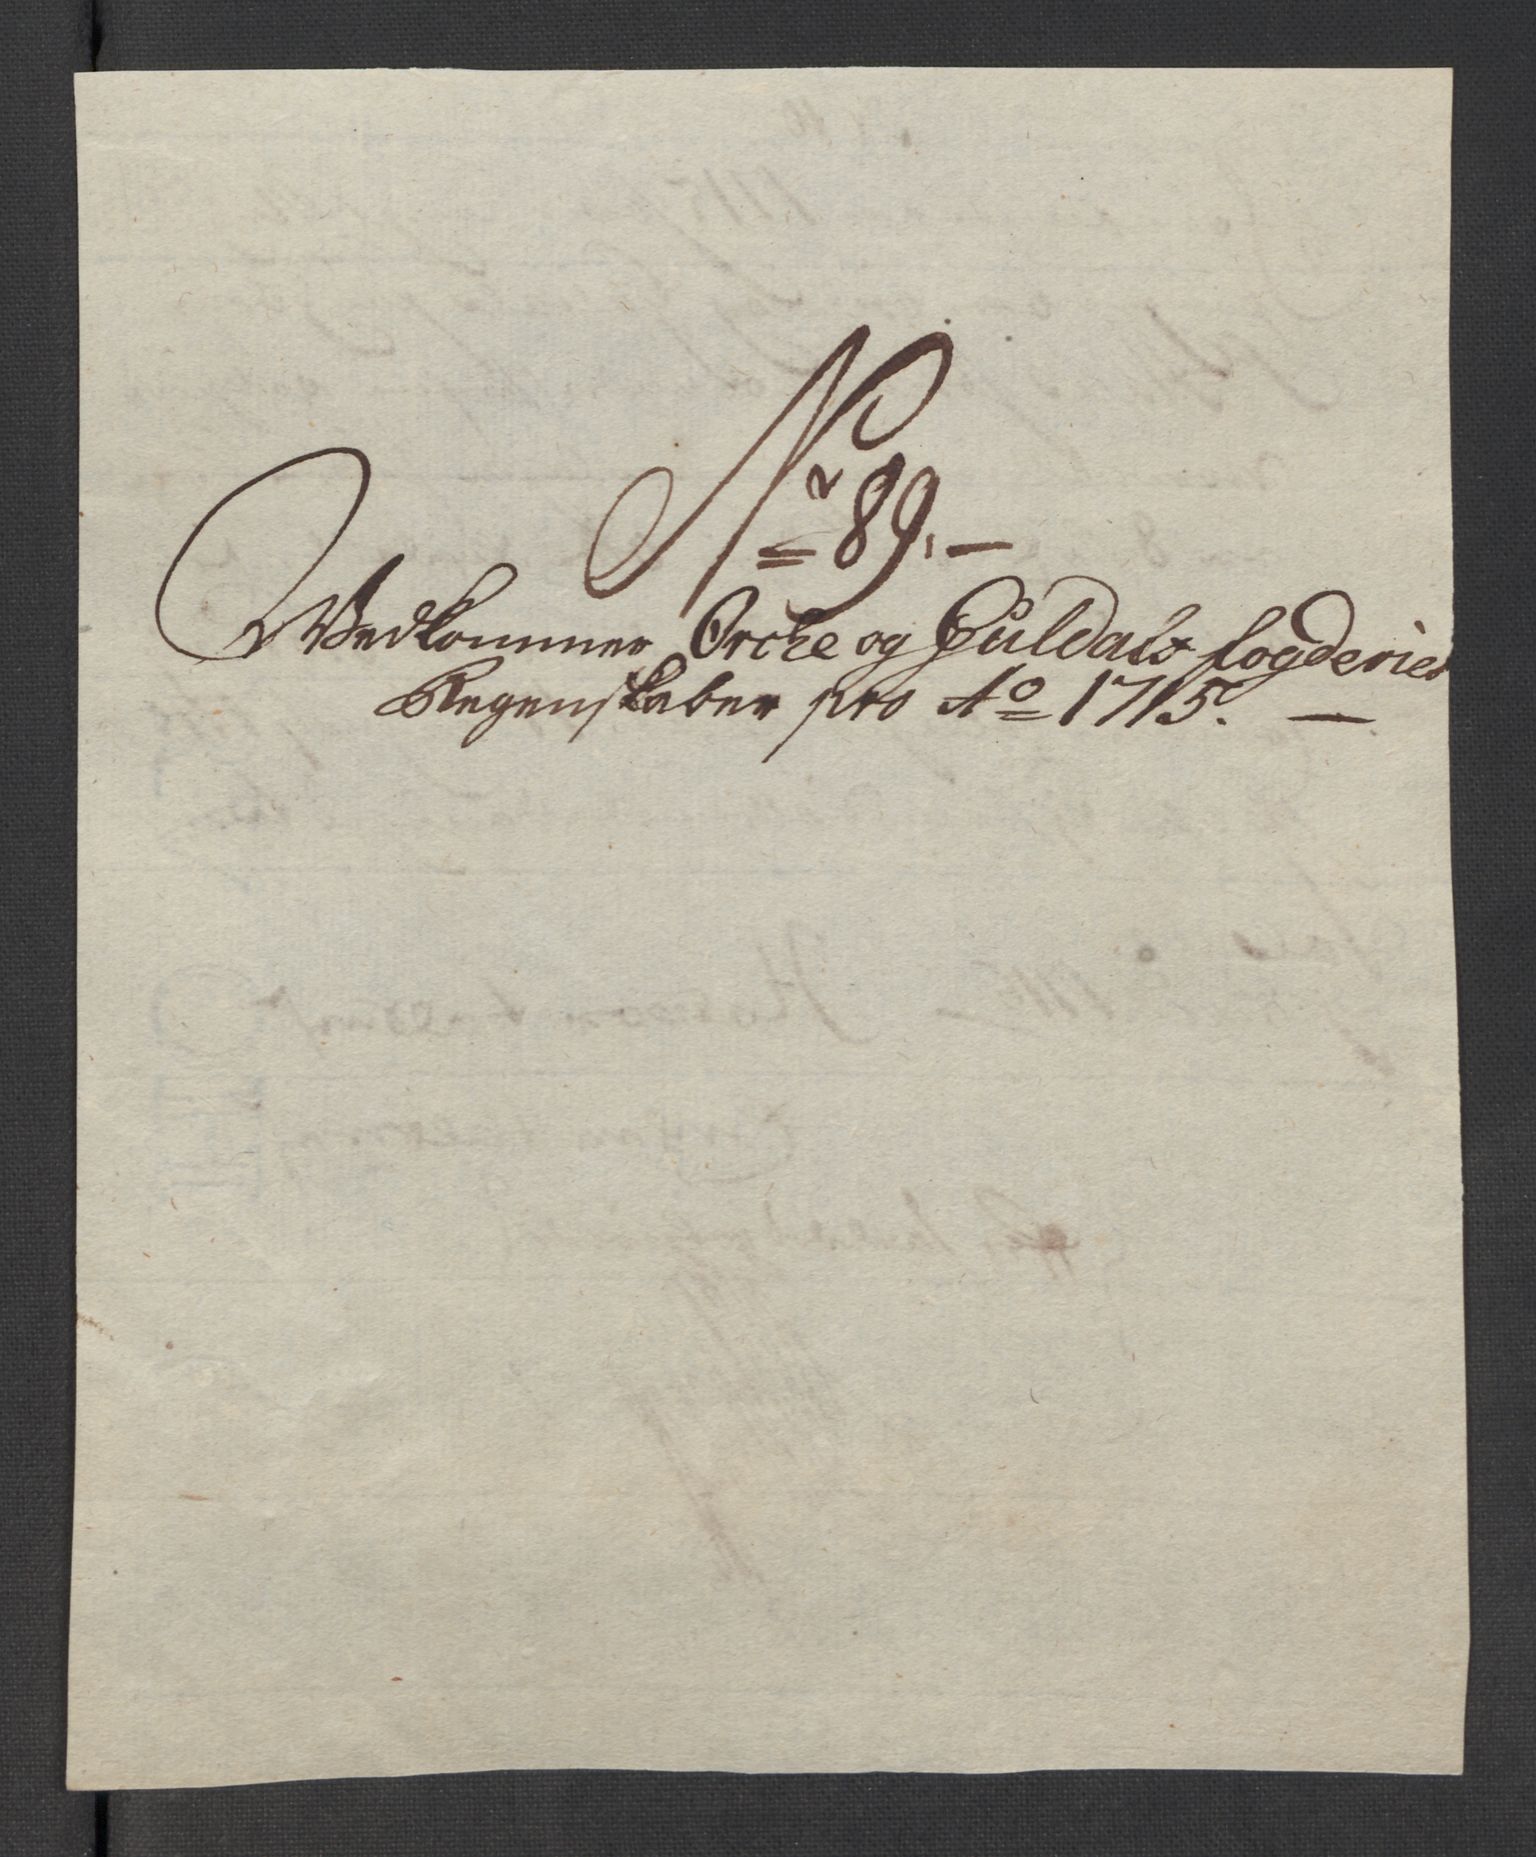 Nr 89. —
Vedkommer Orche og Guldals fogderies
Regenskaber pro Ao 1715. —